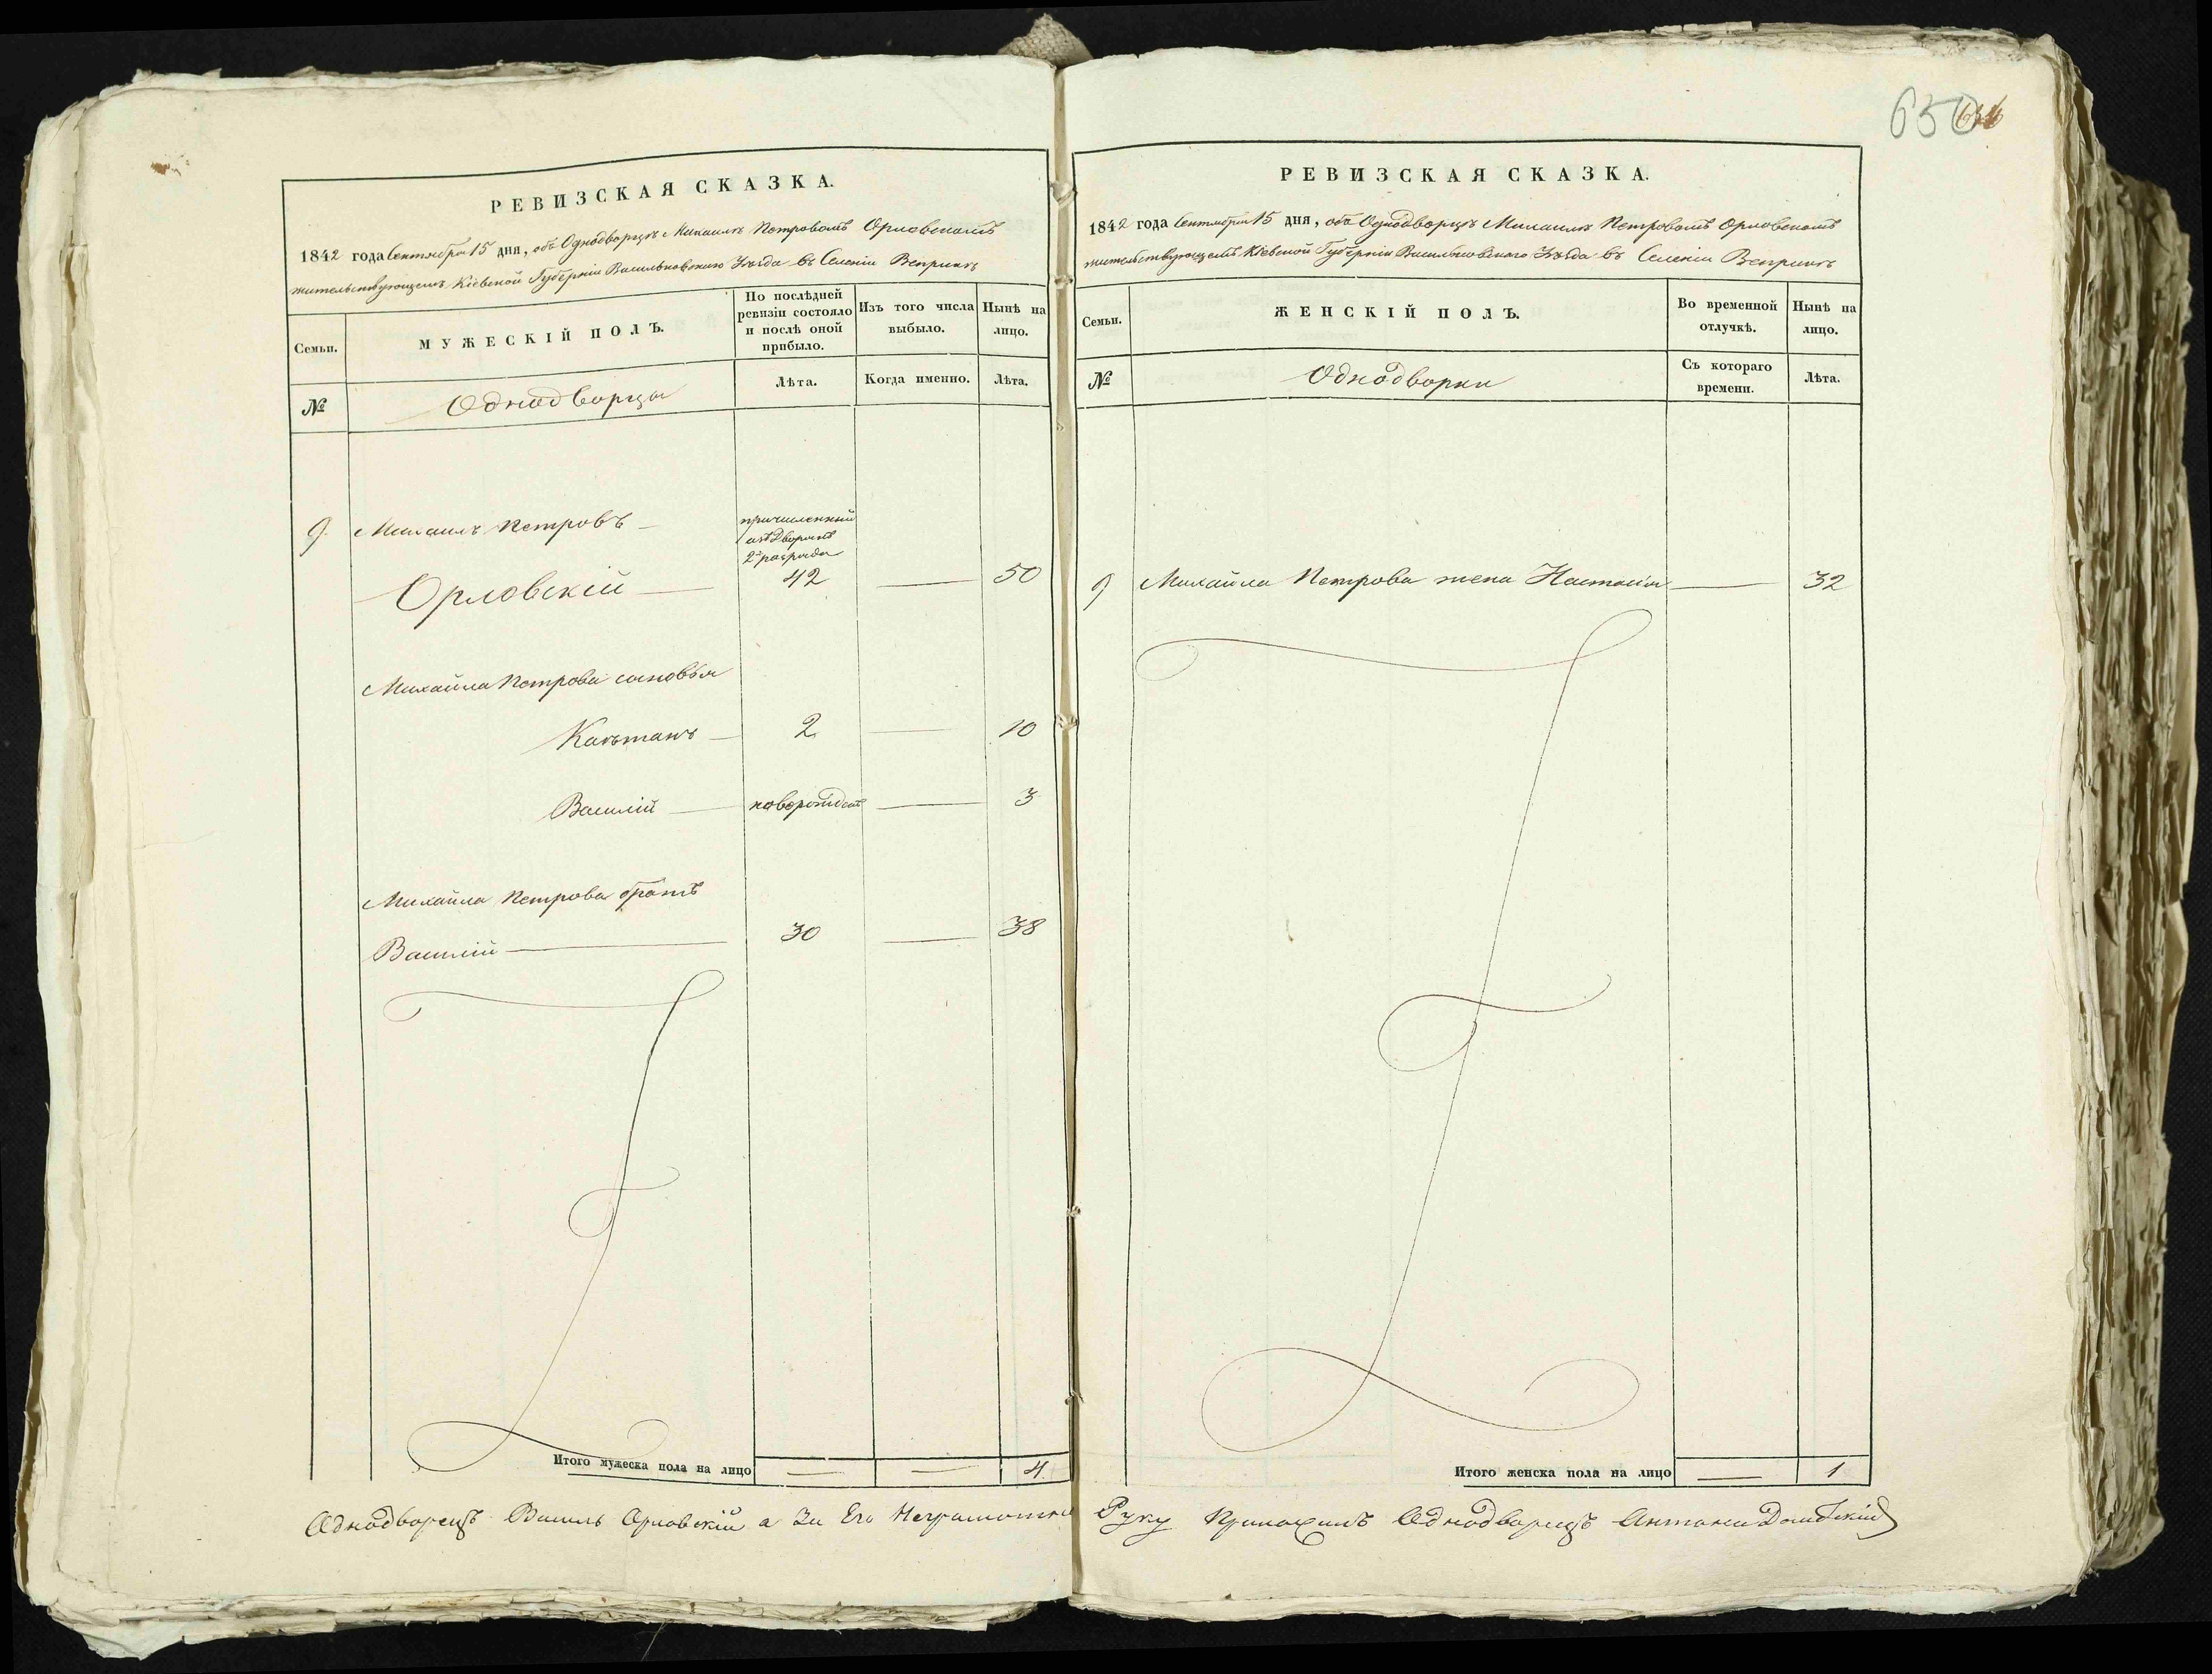 РЕВИЗСКАЯ СКАЗКА.
1842 года Сентября 15 дня, объ Однодворцѣ Михаилѣ Петровомъ Орловскомъ
жительствующемъ Кіевской Губерніи Васильковскаго Уѣзда въ Селеніи Веприкѣ
Семьи.
МУЖЕСКІЙ ПОЛЪ.
По послѣдней
ревизіи состояло
и послѣ оной
прибыло.
Изъ того числа
выбыло.
Нынѣ на
лицо.
№
Однодворцы
Лѣта.
Когда именно.
Лѣта.
9. Михаилъ Петровъ
причисленный
изъ Дворянъ
2 разряда
Орловскій 42 50
Михайла Петрова сыновья
Каэтанъ 2 10
Василій новорожден 3
Михайла Петрова братъ
Василій 30 38
Итого мужеска пола на лицо 4
650
РЕВИЗСКАЯ СКАЗКА.
1842 года Сентября 15 дня, объ Однодворцѣ Михаилѣ Петровомъ Орловскомъ
жительствующемъ Кіевской Губерніи Васильковскаго Уѣзда въ Селеніи Веприкѣ
Семьи.
ЖЕНСКІЙ ПОЛЪ.
Во временной
отлучкѣ.
Нынѣ на
лицо.
№
Однодворки
Съ котораго
времени.
Лѣта.
9 Михайла Петрова жена Настасія 32
Итого женска пола на лицо 1
Однодворецъ Василь Орловскій а За Его Неграмотна Руку Приложилъ Однодворецъ Антони